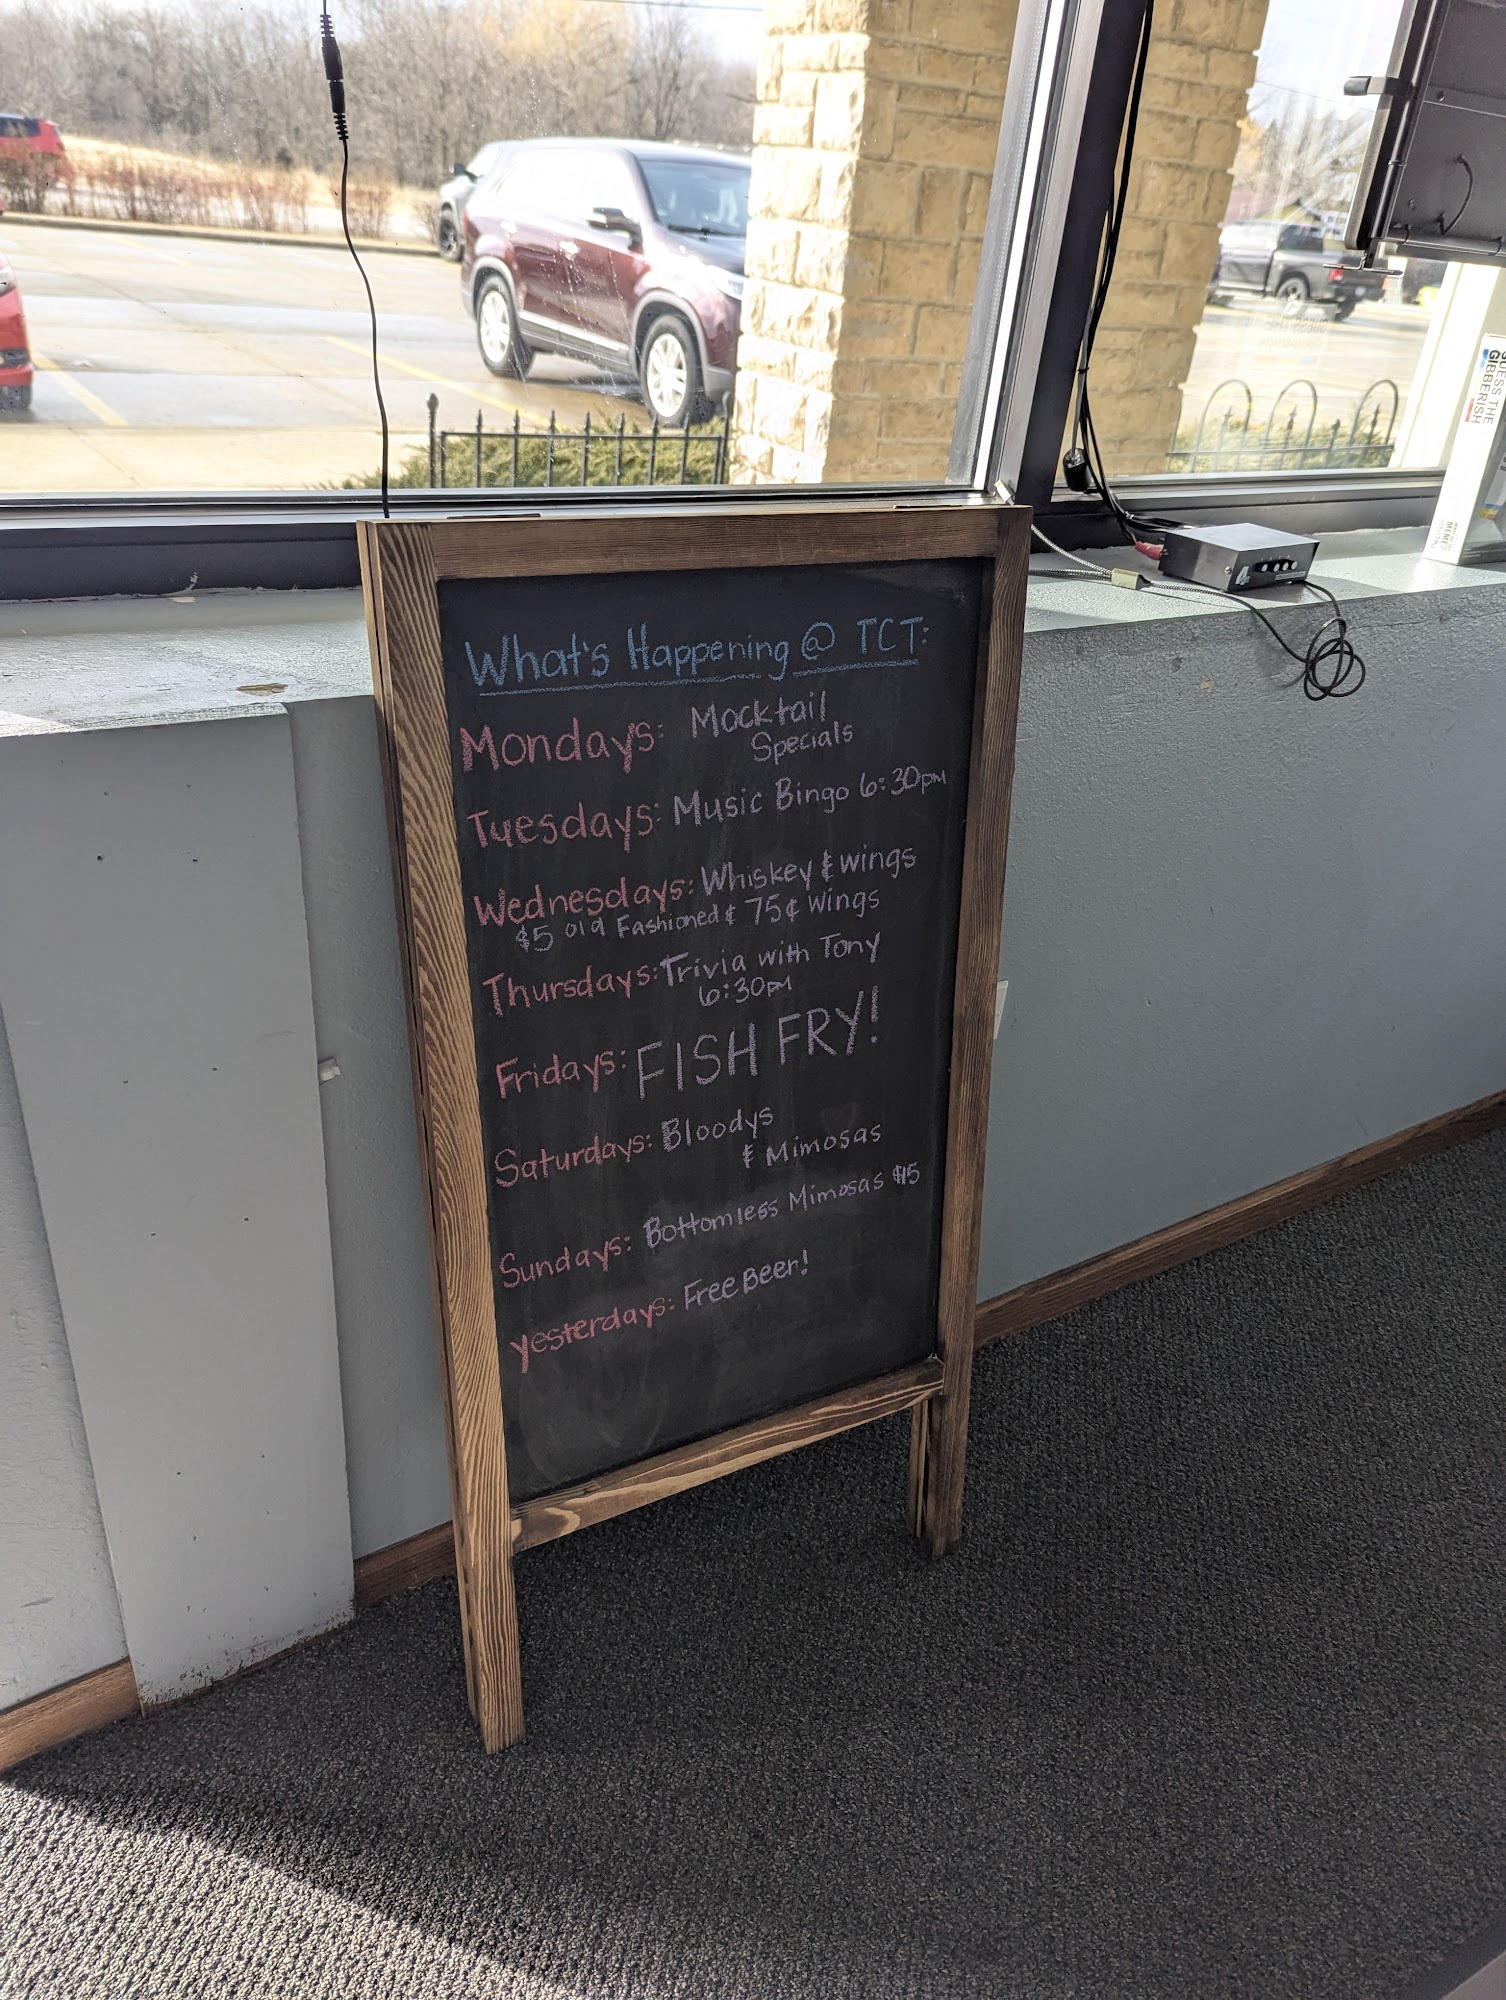 What's Happening @ TCT:
Mondays: Mocktail
Specials
Tuesdays: Music Bingo 6:30pm
Wednesdays: Whiskey & wings
$5 old Fashioned & 75¢ wings
Thursdays: Trivia with Tony
6:30pm
Fridays: FISH FRY!
Saturdays: Bloodys
& Mimosas
Sundays: Bottomless Mimosas $15
yesterdays: Free Beer!
GUESS THE
GIBBERISH
4